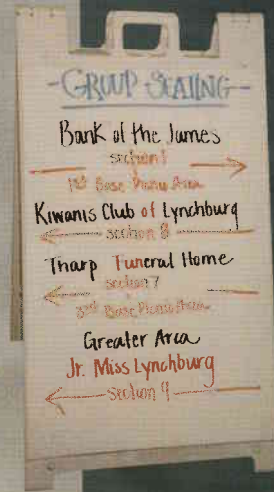 -GROUP SEATING-
Bank of the James
section 1
1st Base Picnic Area
Kiwanis Club of Lynchburg
section 8
Tharp Funeral Home
section 7
3rd Base Picnic Area
Greater Area
Jr. Miss Lynchburg
section 9